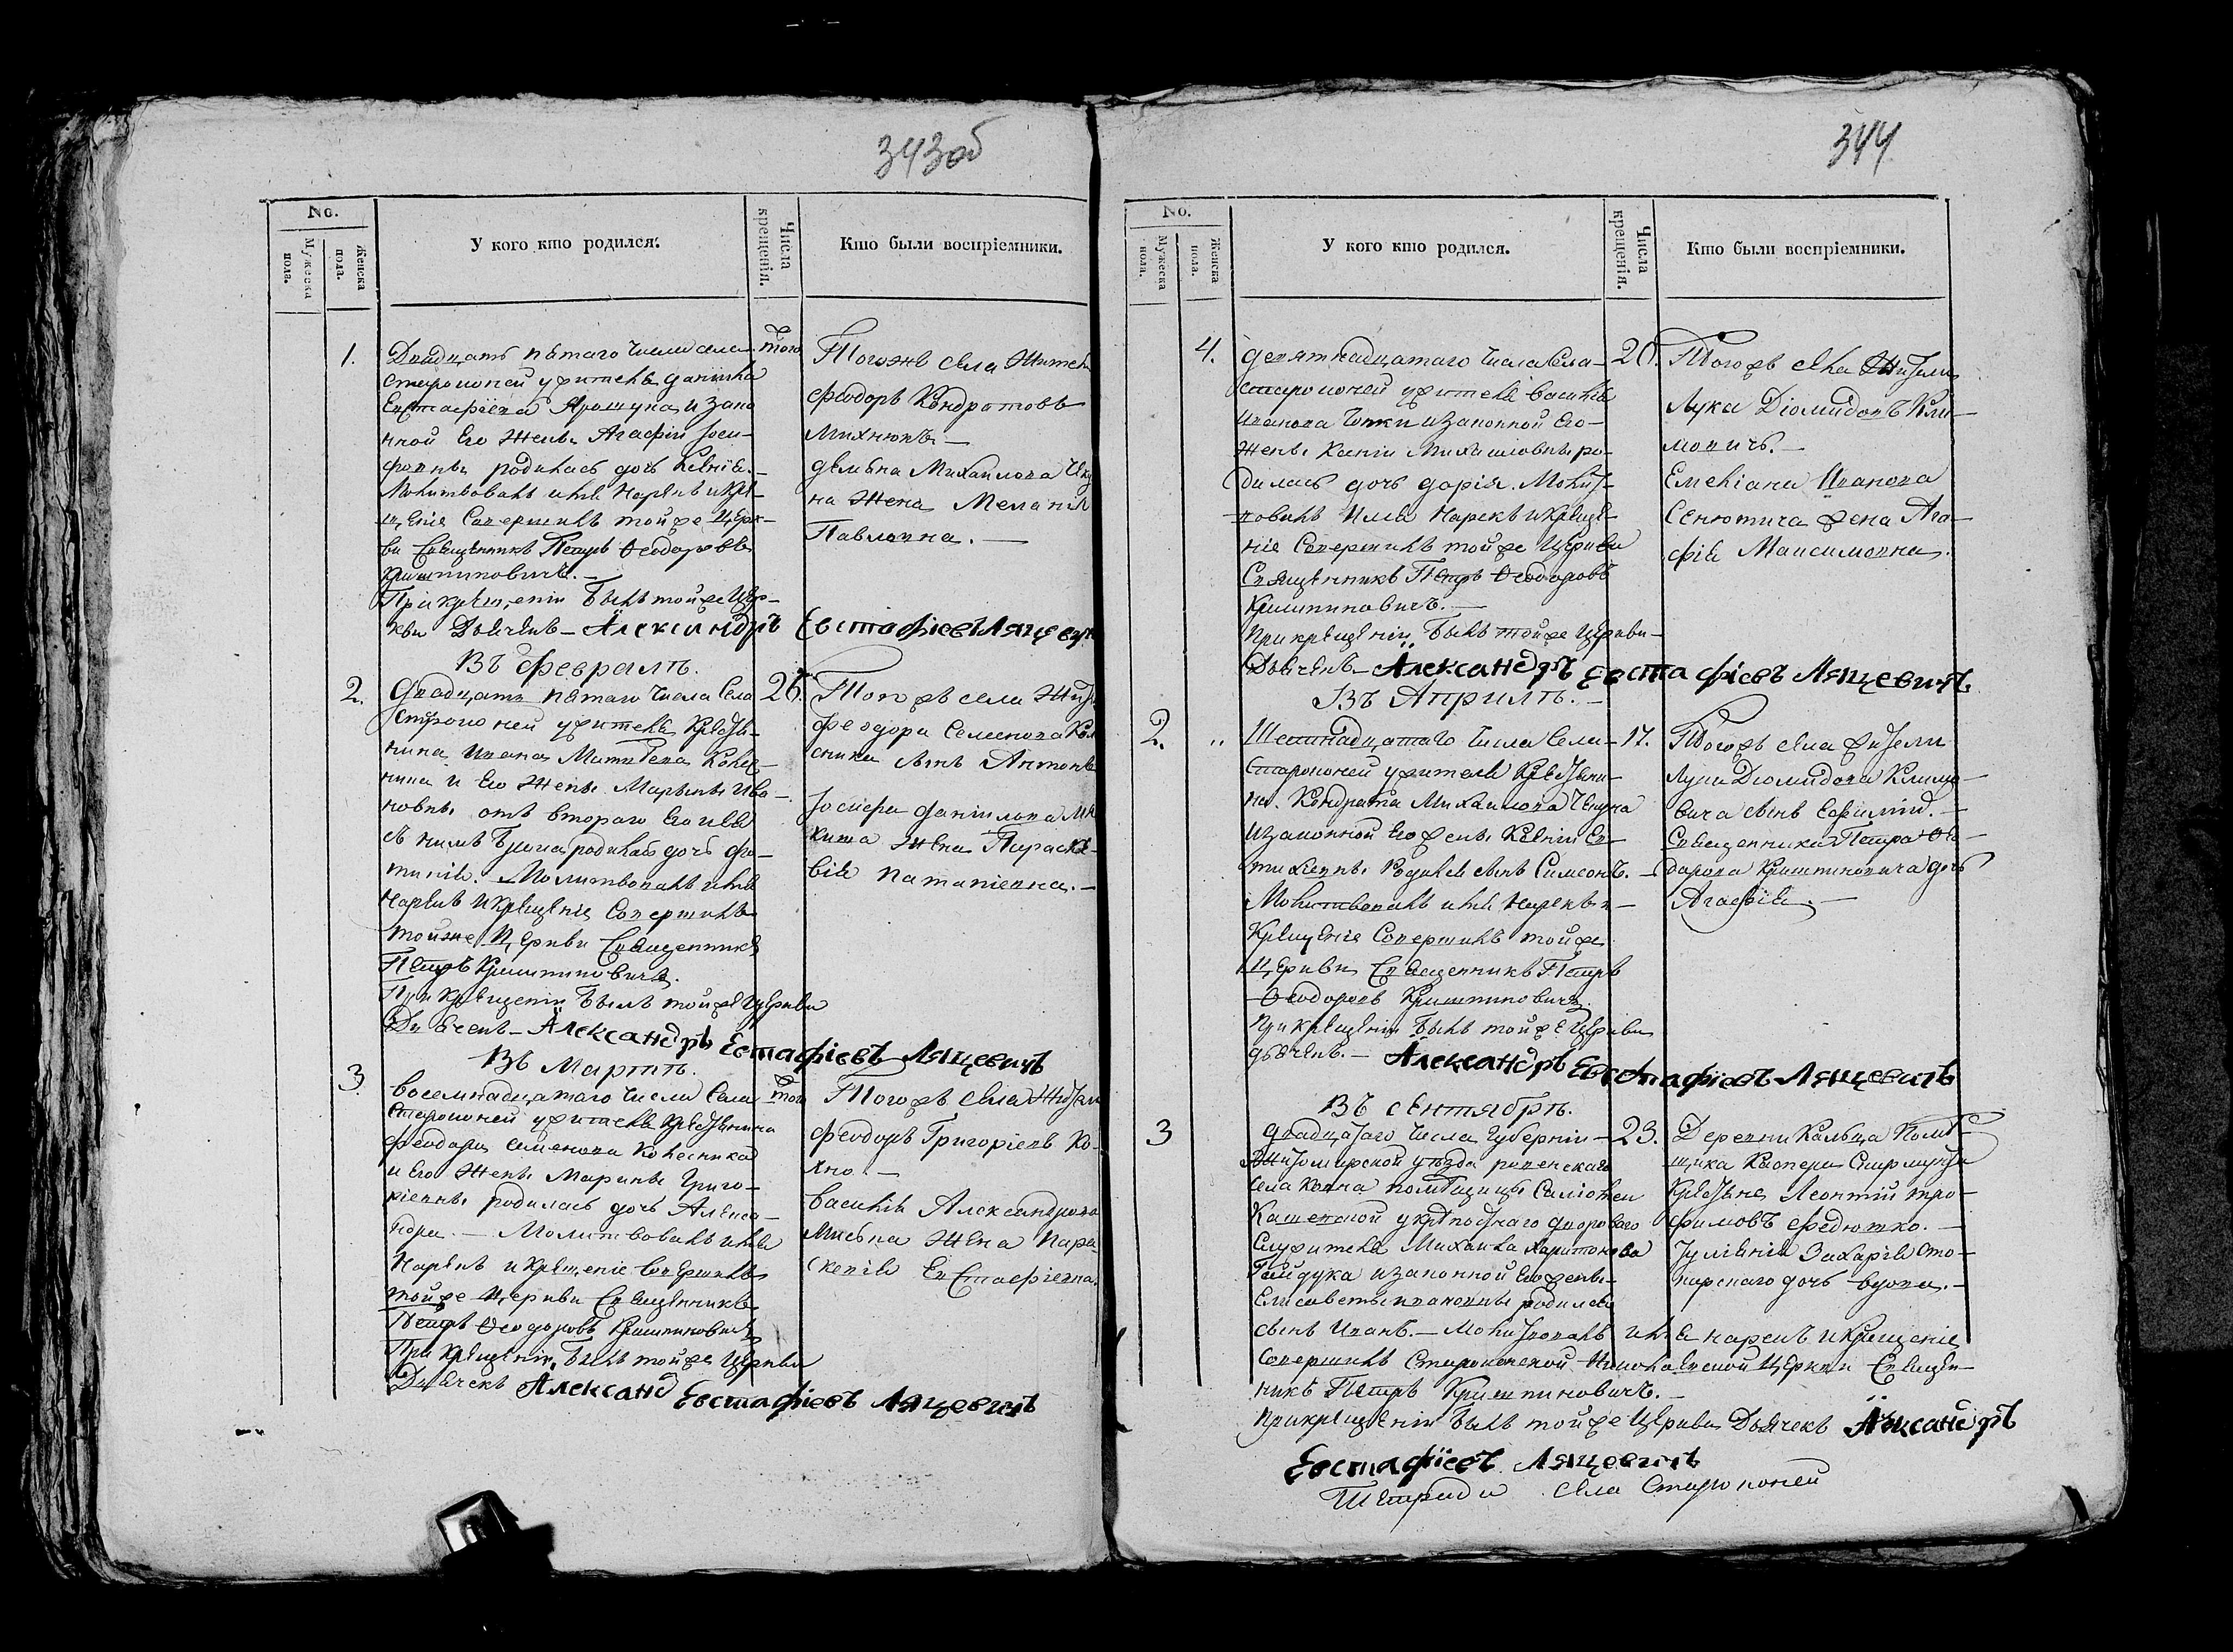 343об
No.
Мужеска пола.
Женска пола.
У кого кто родился.
Числа крещенія.
Кто были воспріемники.
1.
Двадцать пятаго числа села
Старопоней жителя Даніила
Евстафіева Ярощука и зако
нной его жены Агафіи Іоси-
фовны родилась дочь Ксенія.-
Молитвовалъ имя нарекъ и кре-
щеніе совершилъ тойже Церк-
ви священникъ Петръ Ѳеодоровъ
Криштиновичъ.-
При крещеніи былъ тойже Цер-
кви Дьячекъ - Александръ Евстафіевъ Лящевичъ
того
Тогожъ села жители
Феодоръ Кондратовъ
Михнюкъ-
Михайлова
на жена Меланія
Павловна.-
Въ Февралѣ.
2.
Двадцать пятаго числа села
жителя Крестья-
нина Ивана
нина и его жены Марьяны Ива-
новны отъ втораго его
съ нимъ брака родилась дочь Фо-
тинія. Молитвовалъ имя
нарекъ и крещеніе совершилъ
тойже Церкви священникъ
Петръ Криштиновичъ.
При крещеніи былъ тойже Церкви
Дьячекъ - Александръ Евстафіевъ Лящевичъ
26.
Тогожъ села
Феодора Семенова
сника сынъ Антонъ
Іосифа Данилова
жена Параске-
вія
Въ Мартѣ.
3.
Восемнадцатаго числа села
Старопоней жителя крестьянина
Феодора Семенова Колесника
и его жены Марины Григо-
ріевны родилась дочь Алекса-
ндра.- Молитвовалъ имя
нарекъ и крещеніе совершилъ
тойже Церкви священникъ
Петръ Ѳеодоровъ Криштиновичъ
При крещеніи былъ тойже Церкви
Дьячекъ Александ Евстафіевъ Лящевичъ
того
Тогожъ села жители
Феодоръ Григоріевъ Ко-
хно.-
Василія Александрова
жена Пара-
скевія Евстафіевна.
344
No.
Мужеска пола.
Женска пола.
У кого кто родился.
Числа крещенія.
Кто были воспріемники.
4.
Девятнадцатаго числа села
Старопоней жителя Василія
Иванова и законной его
жены Ксеніи Михайловны ро-
дилась дочь Дарія. Молит-
вовалъ имя нарекъ и креще-
ніе совершилъ тойже Церкви
Священникъ Петръ Ѳеодоровъ
Криштиновичъ.-
При крещеніи былъ тойже Церкви
Дьячекъ - Александръ Евстафіевъ Лящевичъ.
20.
Тогожъ села жители
Лука Діомидовъ Кли-
мовичъ.-
Емеліана Иванова
Сенютича жена Ага-
фія Максимовна.
Въ Априлѣ.-
2.
"
Шестнадцатаго числа села
Старопоней жителя Крестьяни-
на Кондрата Михайлова
и законной его жены Ксеніи Ев-
тихіевны родился сынъ Симеонъ.-
Молитвовалъ имя нарекъ и
крещеніе совершилъ тойже
Церкви Священникъ Петръ
Ѳеодоровъ Криштиновичъ.
При крещеніи былъ тойже Церкви
дьячекъ.- Александръ Евстафіевъ Лящевичъ
17.
Тогожъ села жители
Луки Діомидова Климо-
вича сынъ Евфимій.-
Священника Петра Ѳео-
дорова Криштиновича дочь
Агафія.-
Въ Сентябрѣ.
3
Двадцатаго числа Губерніи
Житомирской уѣзда ровенскаго
села помѣщицы
крѣпостнаго двороваго
служителя Михаила Харитонова
Гайдука и законной его жены
Елисаветы Ивановны родился
сынъ Иванъ.- Молитвовалъ имя нарекъ и крещеніе
совершилъ Старопонской Николаевской Церкви Священ-
никъ Петръ Криштиновичъ.-
При крещеніи былъ тойже Церкви Дьячекъ Александръ
Евстафіевъ Лящевичъ
23.
Деревни помѣ-
щика
Крестьяне Леонтій Тро-
фимовъ Федютко.-
Іуліанія Захарія
дочь вдова.-
села Старопоней